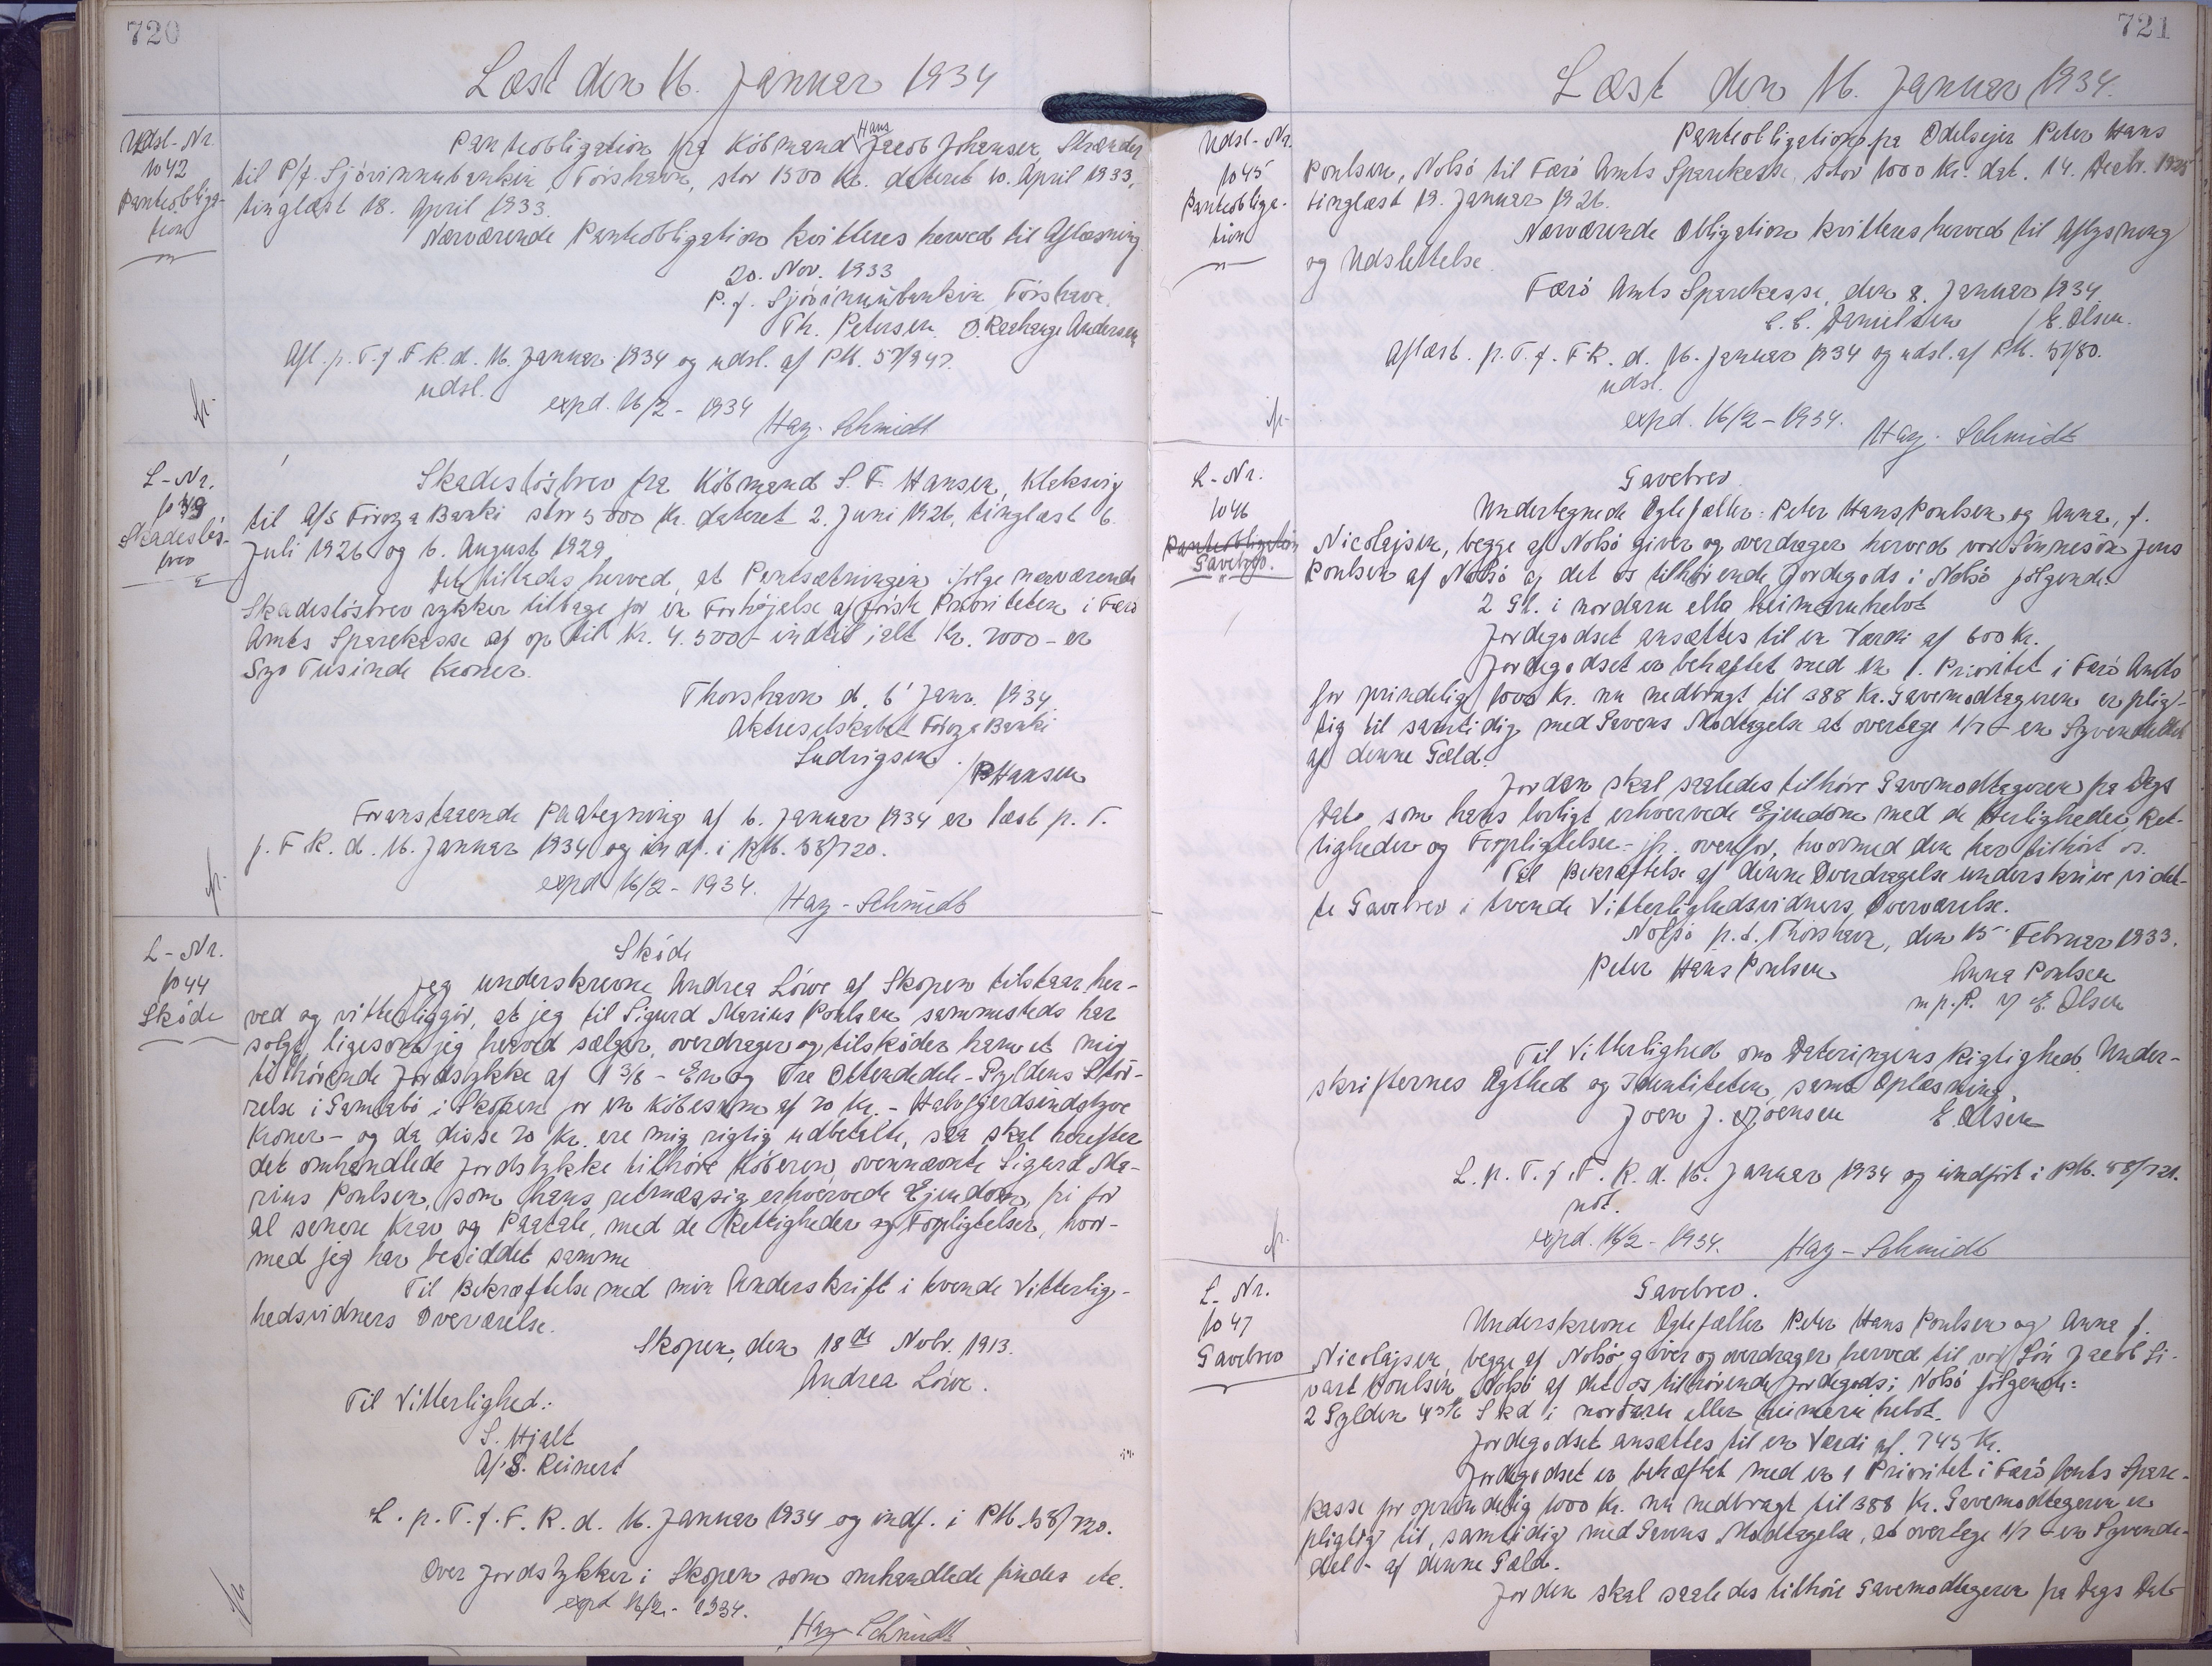 720
Læst den 16. Januar 1934
Udsl-Nr.
1042
Panteobliga-
tion
Panteobligation fra Købmand Hans Jacob Johansen, Strænder
til P/f. Sjóvinnubankin, Tórshavn, stor 1500 Kr. dateret 10. April 1933,
tinglæst 18. April 1933.
Nærværende Panteobligation kvitteres herved til Aflæsning
20. Nov. 1933
P. f. Sjóvinnubankin, Tórshavn.
Th. Petersen. Andersen
Afl. p. T. f. F. R. d. 16. Januar 1934 og udsl. af PM. 57/947.
udsl.
expd. 16/2 - 1934
Hay-Schmidt
L-Nr.
Skadesløs-
brev
Skadesløsbrev fra Købmand S. F. Hansen, Klaksvig
til A/S Føroya Banki stor 5000 Kr. dateret 2. Juni 1926, tinglæst 6.
Juli 1926 og 6. August 1929.
Det tillades herved, at Pantsætningen ifølge nærværende
Skadesløsbrev rykker tilbage for en Forhøjelse af første Prioriteten i Færø
Amts Sparekasse af op til Kr. 4.500 - indtil ialt Kr. 7000 - er
Syv Tusinde Kroner.
Thorshavn d. 6' Janr. 1934.
Aktieselskabet Føroya Banki
Ludvigsen. / P Hansen
Foranstaaende Paategning af 6. Januar 1934 er læst p. T.
f. F. R. d. 16. Januar 1934 og indf. i PM. 58/720.
expd 16/2 - 1934.
Hay-Schmidt
L-Nr.
1044
Skøde
Skøde
Jeg underskrevne Andrea Lówe af Skopen tilstaar her-
ved og vitterliggør, at jeg til Sigurd Marius Poulsen sammesteds har
solgt, ligesom jeg herved sælger, overdrager og tilskøder ham et mig
tilhørende Jordstykke af 1 3/8 - En og Tre Ottendedele - Gyldens Stør-
relse i Gamlabø i Skopen for en Købesum af 70 Kr. - Halvfjerdsindstyve
Kroner - og da disse 70 Kr. ere mig rigtig udbetalte, saa skal herefter
det omhandlede Jordstykke tilhøre Køberen, ovennævnte Sigurd Ma-
rius Poulsen, som hans retmæssig erhvervede Ejendom, fri for
al senere Krav og Paatale, med de Rettigheder og Forpligtelser, hvor-
med jeg har besiddet samme
Til Bekræftelse med min Underskrift i tvende Vitterlig-
hedsvidners Overværelse.
Skopen, den 18de Nobr. 1913.
Andrea Lówe.
Til Vitterlighed:
S. Hjalt
A/S. Reinert
L. p. T. f. F. R. d. 16. Januar 1934 og indf. i PM. 58/720.
Over Jordstykker i Skopen som omhandlede findes etc.
expd 16/2 - 1934.
Hay-Schmidt
721
Læst den 16. Januar 1934.
Udsl-Nr.
1045
Panteobliga-
tion
Panteobligation fra Odelsejer Peter Hans
Poulsen, Nolsø til Færø Amts Sparekasse, stor 1000 Kr. dat. 14. Decbr. 1925
tinglæst 19. Januar 1926.
Nærværende Obligation kvitteres herved til Aflysning
og Udslettelse.
Færø Amts Sparekasse, den 8. Januar 1934.
Danielsen / E. Olsen.
Aflæst. p. T. f. F. R. d. 16. Januar 1934 og udsl. af PM. 51/80.
udsl.
expd. 16/2 - 1934.
Hay-Schmidt
L-Nr.
1046
Panteobligation
Gavebrev.
Gavebrev
Undertegnede Ægtefæller: Peter Hans Poulsen og Anna, f.
Nicolajsen, begge af Nolsø giver og overdrager herved vor Sønnesøn Jens
Poulsen af Nolsø af det os tilhørende Jordegods i Nolsø følgende
2 Gl. i nordaru ella heimaruhelvt
Jordegodset ansættes til en Værdi af 600 Kr.
Jordegodset er behæftet med en 1. Prioritet i Færø Amts
for oprindelig 1000 Kr. nu nedbragt til 388 Kr. Gavemodtageren er plig-
tig til samtidig med Gavens Modtagelse at overtage 1/7 - en Syvendedel
af denne Gæld.
Jorden skal saaledes tilhøre Gavemodtageren fra Dags
Dato som hans lovligt erhvervede Ejendom med de Herligheder, Ret-
tigheder og Forpligtelser - jfr. ovenfor, hvormed den har tilhørt os.
Til Bekræftelse af denne Overdragelse underskrive vi det-
te Gavebrev i tvende Vitterlighedsvidners Overværelse.
Nolsø p. t. Thorshavn, den 15' Februar 1933.
Peter Hans Poulsen Anna Poulsen
m. p. P. v/ E. Olsen
Til Vitterlighed om Dateringens Rigtighed, Under-
skrifternes Ægthed og Identiteten, samt Oplæsning
Joen J. Joensen E. Olsen
L. p. T. f. F. R. d. 16. Januar 1934 og indført i PM. 58/721.
not.
expd. 16/2 - 1934.
Hay-Schmidt
L-Nr.
1047
Gavebrev
Gavebrev.
Underskrevne Ægtefæller Peter Hans Poulsen og Anna f.
Nicolajsen, begge af Nolsø, giver og overdrager herved til vor Søn Jacob Si-
vart Poulsen, Nolsø af det os tilhørende Jordegods i Nolsø følgende:
2 Gylden Skd i nordaru eller heimaru helvt.
Jordegodset ansættes til en Værdi af 745 Kr.
Jordegodset er behæftet med en 1 Prioritet i Færø Amts Spare-
kasse for oprindelig 1000 Kr. nu nedbragt til 388 Kr. Gavemodtageren er
pligtig til, samtidig med Gavens Modtagelse, at overtage 1/7 - en Syvende-
del - af denne Gæld.
Jorden skal saaledes tilhøre Gavemodtageren fra Dags Dato